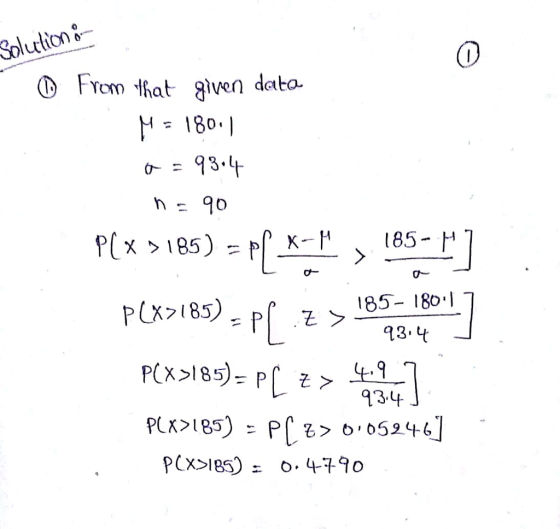 Solution:-
①
① From that given data
μ = 180.1
σ = 93.4
n = 90
P(X > 185) = P[ (X-μ)/σ > (185-μ)/σ ]
P(X>185) = P[ Z > (185-180.1)/93.4 ]
P(X>185) = P[ Z > 4.9/93.4 ]
P(X>185) = P[ Z > 0.05246]
P(X>185) = 0.4790